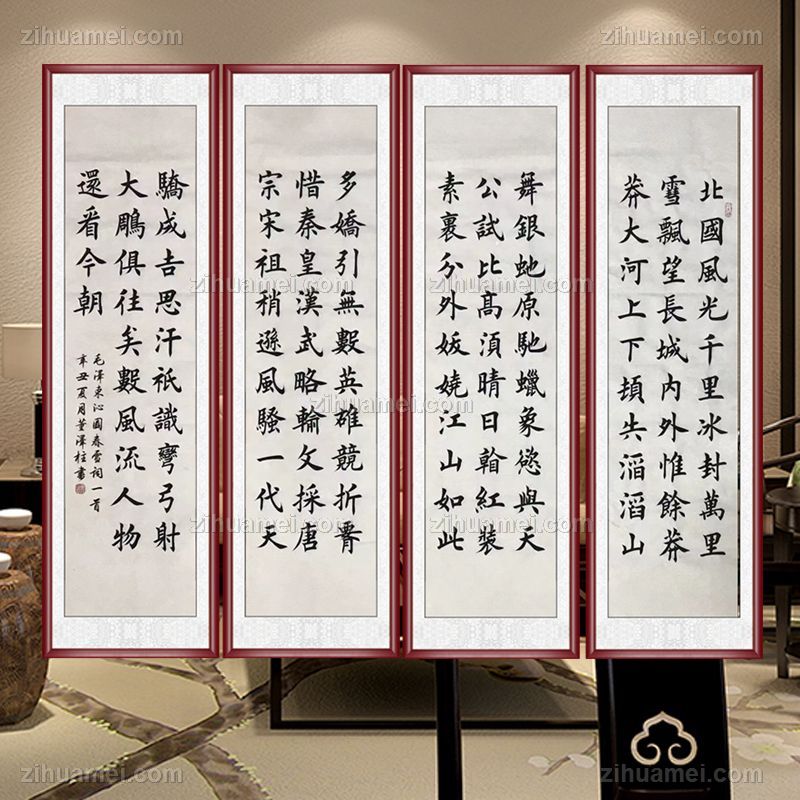 北國風光千里冰封萬里
雪飄望長城內外惟餘莽
莽大河上下頓失滔滔山
舞銀蛇原馳蠟象慾與天
公試比高湏晴日翰紅裝
素裹分外妖嬈江山如此
多嬌引無數英雄競折腰
惜秦皇漢武略輸文採唐
宗宋祖稍遜風騷一代天
驕成吉思汗衹識彎弓射
大鵰俱往矣數風流人物
還看今朝
毛澤東沁園春雪詞一首
辛丑夏月董澤柱書
zihuamei.com
zihuamei.com
zihuamei.com
zihuamei.com
zihuamei.com
zihuamei.com
zihuamei.com
zihuamei.com
zihuamei.com
zihuamei.com